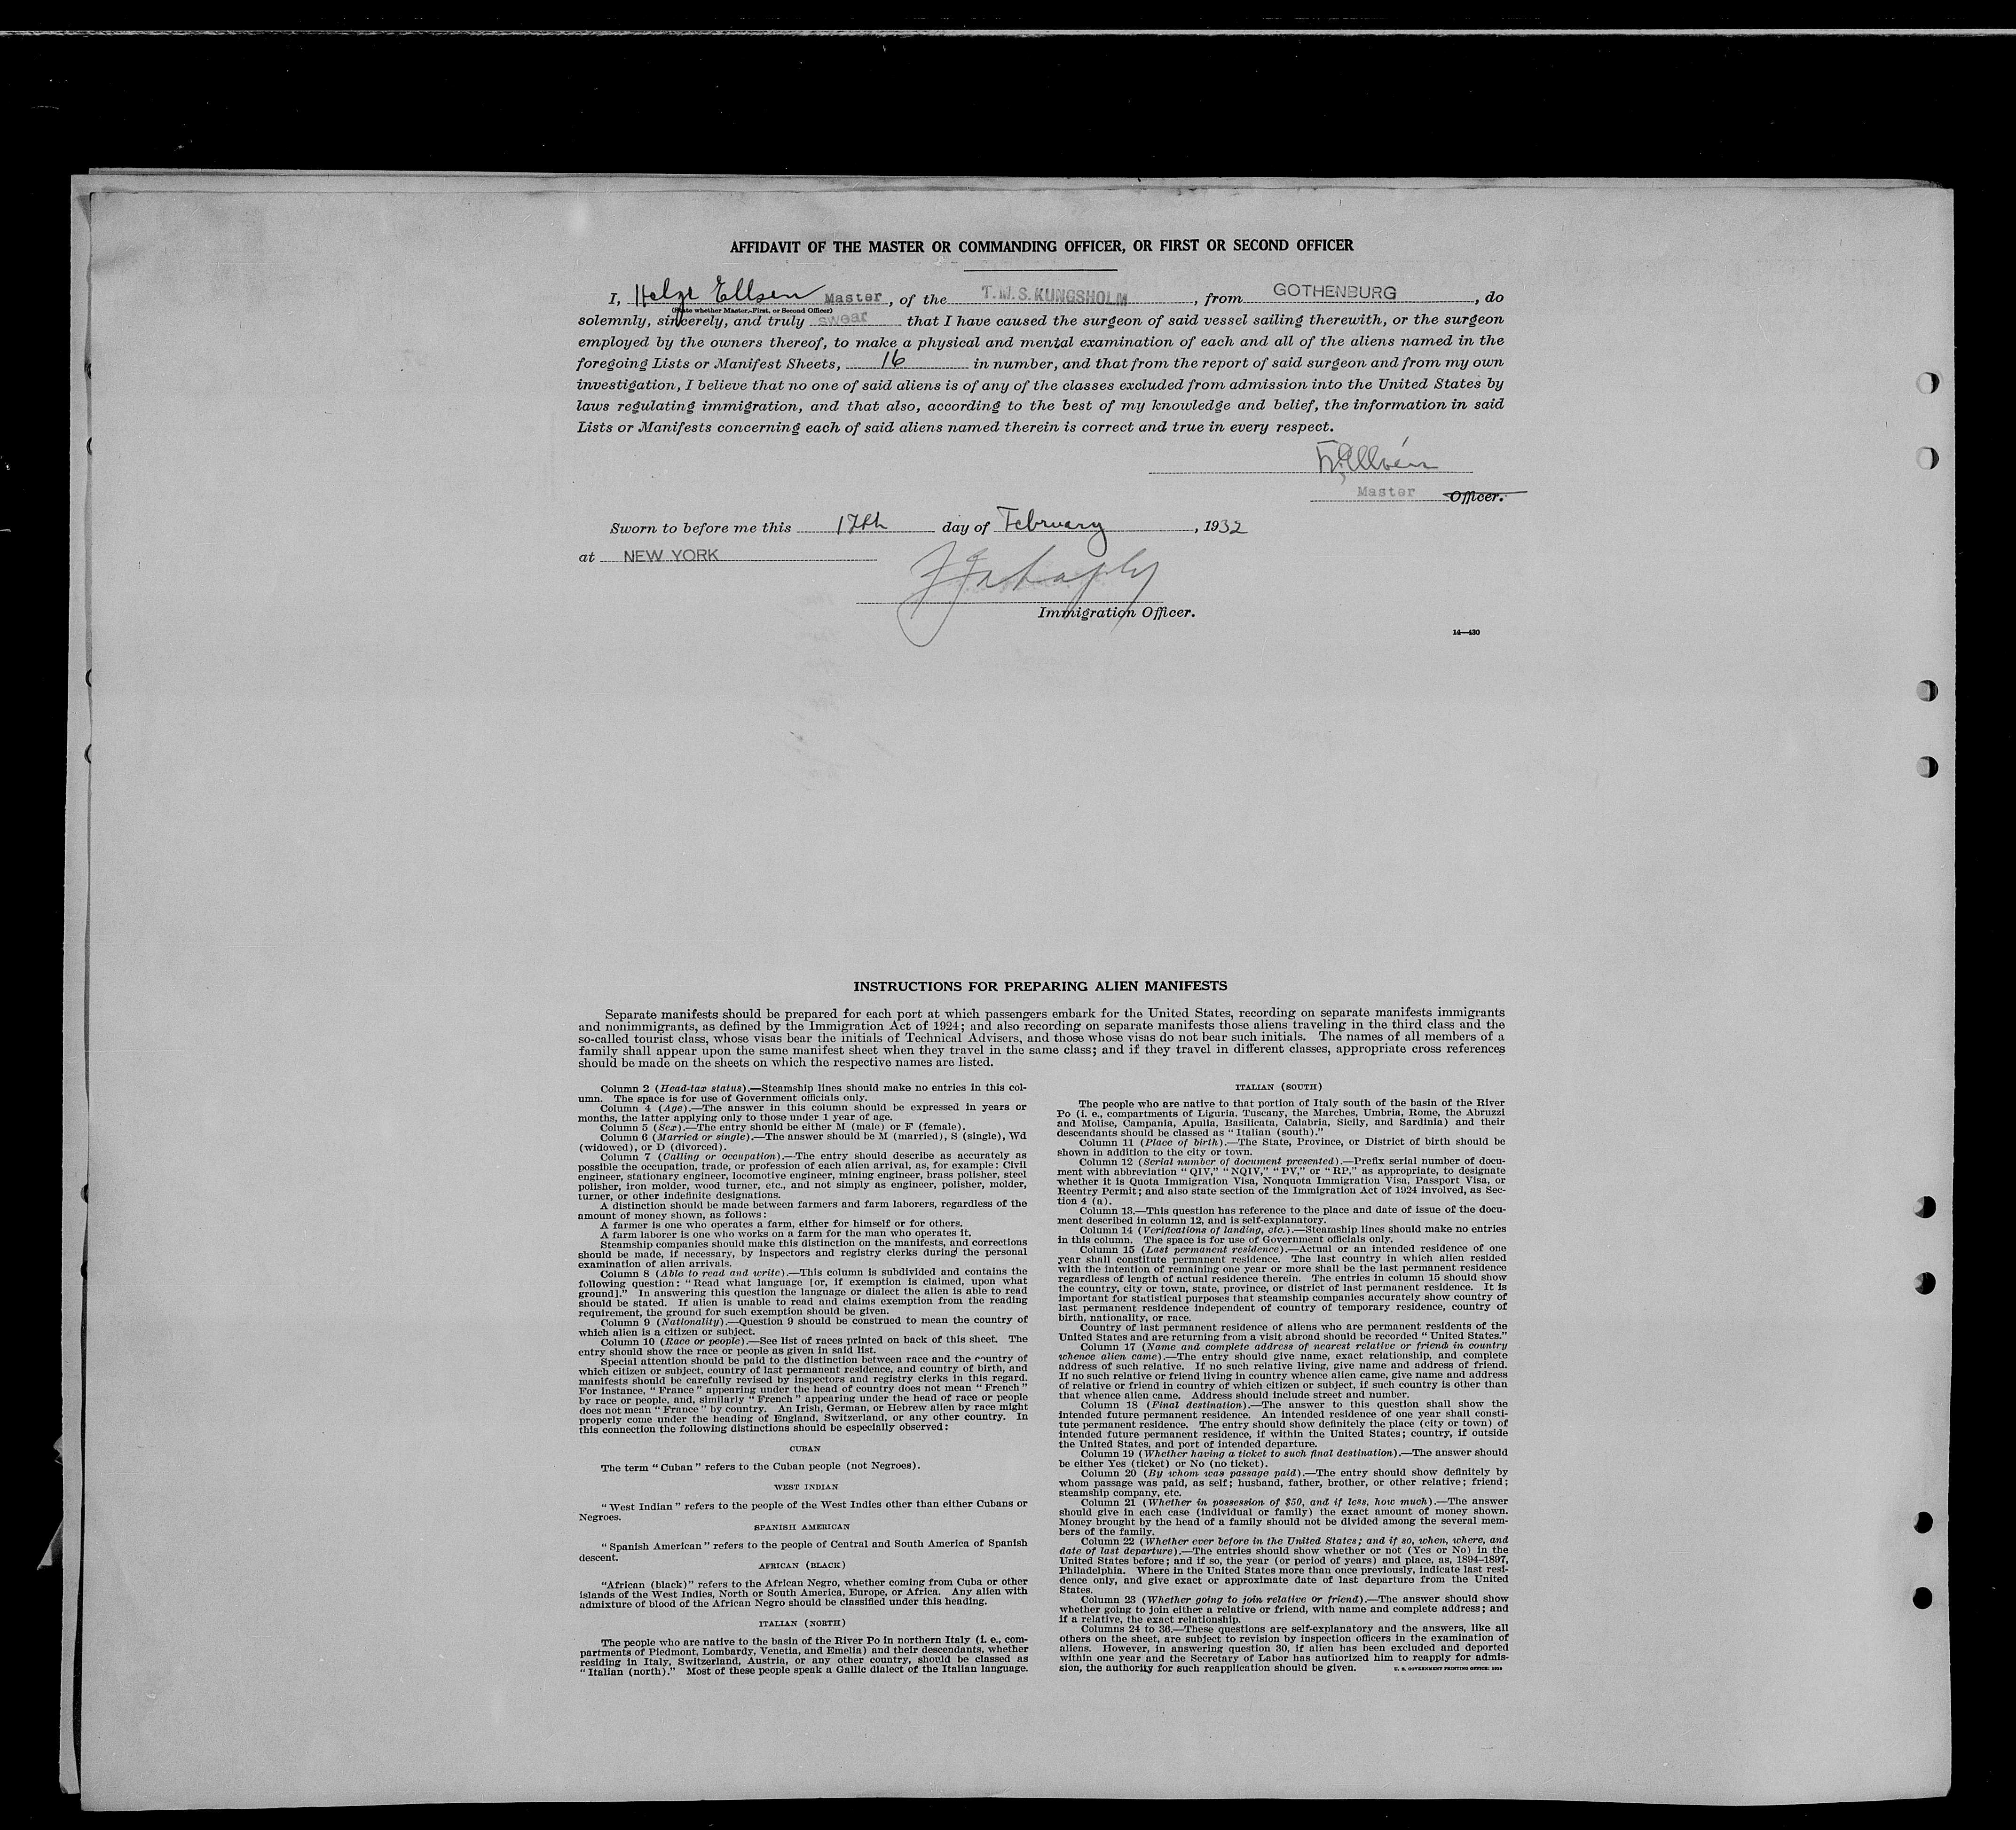 AFFIDAVIT OF THE MASTER OR COMMANDING OFFICER, OR FIRST OR SECOND OFFICER
I, Helge Ellsen Master, of the T.M.S. KUNGSHOLM, from GOTHENBURG, do
(State whether Master, First, or Second Officer)
solemnly, sincerely, and truly swear that I have caused the surgeon of said vessel sailing therewith, or the surgeon
employed by the owners thereof, to make a physical and mental examination of each and all of the aliens named in the
foregoing Lists or Manifest Sheets, 16 in number, and that from the report of said surgeon and from my own
investigation, I believe that no one of said aliens is of any of the classes excluded from admission into the United States by
laws regulating immigration, and that also, according to the best of my knowledge and belief, the information in said
Lists or Manifests concerning each of said aliens named therein is correct and true in every respect.
Master Officer.
Sworn to before me this 17th day of February, 1932
at NEW YORK
Immigration Officer.
14—430
INSTRUCTIONS FOR PREPARING ALIEN MANIFESTS
Separate manifests should be prepared for each port at which passengers embark for the United States, recording on separate manifests immigrants
and nonimmigrants, as defined by the Immigration Act of 1924; and also recording on separate manifests those aliens traveling in the third class and the
so-called tourist class, whose visas bear the initials of Technical Advisers, and those whose visas do not bear such initials. The names of all members of a
family shall appear upon the same manifest sheet when they travel in the same class; and if they travel in different classes, appropriate cross references
should be made on the sheets on which the respective names are listed.
Column 2 (Head-tax status).—Steamship lines should make no entries in this col-
umn. The space is for use of Government officials only.
Column 4 (Age).—The answer in this column should be expressed in years or
months, the latter applying only to those under 1 year of age.
Column 5 (Sex).—The entry should be either M (male) or F (female).
Column 6 (Married or single).—The answer should be M (married), S (single), Wd
(widowed), or D (divorced).
Column 7 (Calling or occupation).—The entry should describe as accurately as
possible the occupation, trade, or profession of each alien arrival, as, for example: Civil
engineer, stationary engineer, locomotive engineer, mining engineer, brass polisher, steel
polisher, iron molder, wood turner, etc., and not simply as engineer, polisher, molder,
turner, or other indefinite designations.
A distinction should be made between farmers and farm laborers, regardless of the
amount of money shown, as follows:
A farmer is one who operates a farm, either for himself or for others.
A farm laborer is one who works on a farm for the man who operates it.
Steamship companies should make this distinction on the manifests, and corrections
should be made, if necessary, by inspectors and registry clerks during the personal
examination of alien arrivals.
Column 8 (Able to read and write).—This column is subdivided and contains the
following question: "Read what language [or, if exemption is claimed, upon what
ground]." In answering this question the language or dialect the alien is able to read
should be stated. If alien is unable to read and claims exemption from the reading
requirement, the ground for such exemption should be given.
Column 9 (Nationality).—Question 9 should be construed to mean the country of
which alien is a citizen or subject.
Column 10 (Race or people).—See list of races printed on back of this sheet. The
entry should show the race or people as given in said list.
Special attention should be paid to the distinction between race and the country of
which citizen or subject, country of last permanent residence, and country of birth, and
manifests should be carefully revised by inspectors and registry clerks in this regard.
For instance, "France" appearing under the head of country does not mean "French"
by race or people, and, similarly "French" appearing under the head of race or people
does not mean "France" by country. An Irish, German, or Hebrew alien by race might
properly come under the heading of England, Switzerland, or any other country. In
this connection the following distinctions should be especially observed:
CUBAN
The term "Cuban" refers to the Cuban people (not Negroes).
WEST INDIAN
"West Indian" refers to the people of the West Indies other than either Cubans or
Negroes.
SPANISH AMERICAN
"Spanish American" refers to the people of Central and South America of Spanish
descent.
AFRICAN (BLACK)
"African (black)" refers to the African Negro, whether coming from Cuba or other
islands of the West Indies, North or South America, Europe, or Africa. Any alien with
admixture of blood of the African Negro should be classified under this heading.
ITALIAN (NORTH)
The people who are native to the basin of the River Po in northern Italy (i. e., com-
partments of Piedmont, Lombardy, Venetia, and Emelia) and their descendants, whether
residing in Italy, Switzerland, Austria, or any other country, should be classed as
"Italian (north)." Most of these people speak a Gallic dialect of the Italian language.
ITALIAN (SOUTH)
The people who are native to that portion of Italy south of the basin of the River
Po (i. e., compartments of Liguria, Tuscany, the Marches, Umbria, Rome, the Abruzzi
and Molise, Campania, Apulia, Basilicata, Calabria, Sicily, and Sardinia) and their
descendants should be classed as "Italian (south)."
Column 11 (Place of birth).—The State, Province, or District of birth should be
shown in addition to the city or town.
Column 12 (Serial number of document presented).—Prefix serial number of docu-
ment with abbreviation "QIV," "NQIV," "PV," or "RP," as appropriate, to designate
whether it is Quota Immigration Visa, Nonquota Immigration Visa, Passport Visa, or
Reentry Permit; and also state section of the Immigration Act of 1924 involved, as Sec-
tion 4 (a).
Column 13.—This question has reference to the place and date of issue of the docu-
ment described in column 12, and is self-explanatory.
Column 14 (Verifications of landing, etc.).—Steamship lines should make no entries
in this column. The space is for use of Government officials only.
Column 15 (Last permanent residence).—Actual or an intended residence of one
year shall constitute permanent residence. The last country in which alien resided
with the intention of remaining one year or more shall be the last permanent residence
regardless of length of actual residence therein. The entries in column 15 should show
the country, city or town, state, province, or district of last permanent residence. It is
important for statistical purposes that steamship companies accurately show country of
last permanent residence independent of country of temporary residence, country of
birth, nationality, or race.
Country of last permanent residence of aliens who are permanent residents of the
United States and are returning from a visit abroad should be recorded "United States."
Column 17 (Name and complete address of nearest relative or friend in country
whence alien came).—The entry should give name, exact relationship, and complete
address of such relative. If no such relative living, give name and address of friend.
If no such relative or friend living in country whence alien came, give name and address
of relative or friend in country of which citizen or subject, if such country is other than
that whence alien came. Address should include street and number.
Column 18 (Final destination).—The answer to this question shall show the
intended future permanent residence. An intended residence of one year shall consti-
tute permanent residence. The entry should show definitely the place (city or town) of
intended future permanent residence, if within the United States; country, if outside
the United States, and port of intended departure.
Column 19 (Whether having a ticket to such final destination).—The answer should
be either Yes (ticket) or No (no ticket).
Column 20 (By whom was passage paid).—The entry should show definitely by
whom passage was paid, as self; husband, father, brother, or other relative; friend;
steamship company, etc.
Column 21 (Whether in possession of $50, and if less, how much).—The answer
should give in each case (individual or family) the exact amount of money shown.
Money brought by the head of a family should not be divided among the several mem-
bers of the family.
Column 22 (Whether ever before in the United States; and if so, when, where, and
date of last departure).—The entries should show whether or not (Yes or No) in the
United States before; and if so, the year (or period of years) and place, as, 1894–1897,
Philadelphia. Where in the United States more than once previously, indicate last resi-
dence only, and give exact or approximate date of last departure from the United
States.
Column 23 (Whether going to join relative or friend).—The answer should show
whether going to join either a relative or friend, with name and complete address; and
if a relative, the exact relationship.
Columns 24 to 36.—These questions are self-explanatory and the answers, like all
others on the sheet, are subject to revision by inspection officers in the examination of
aliens. However, in answering question 30, if alien has been excluded and deported
within one year and the Secretary of Labor has authorized him to reapply for admis-
sion, the authority for such reapplication should be given.
U. S. GOVERNMENT PRINTING OFFICE: